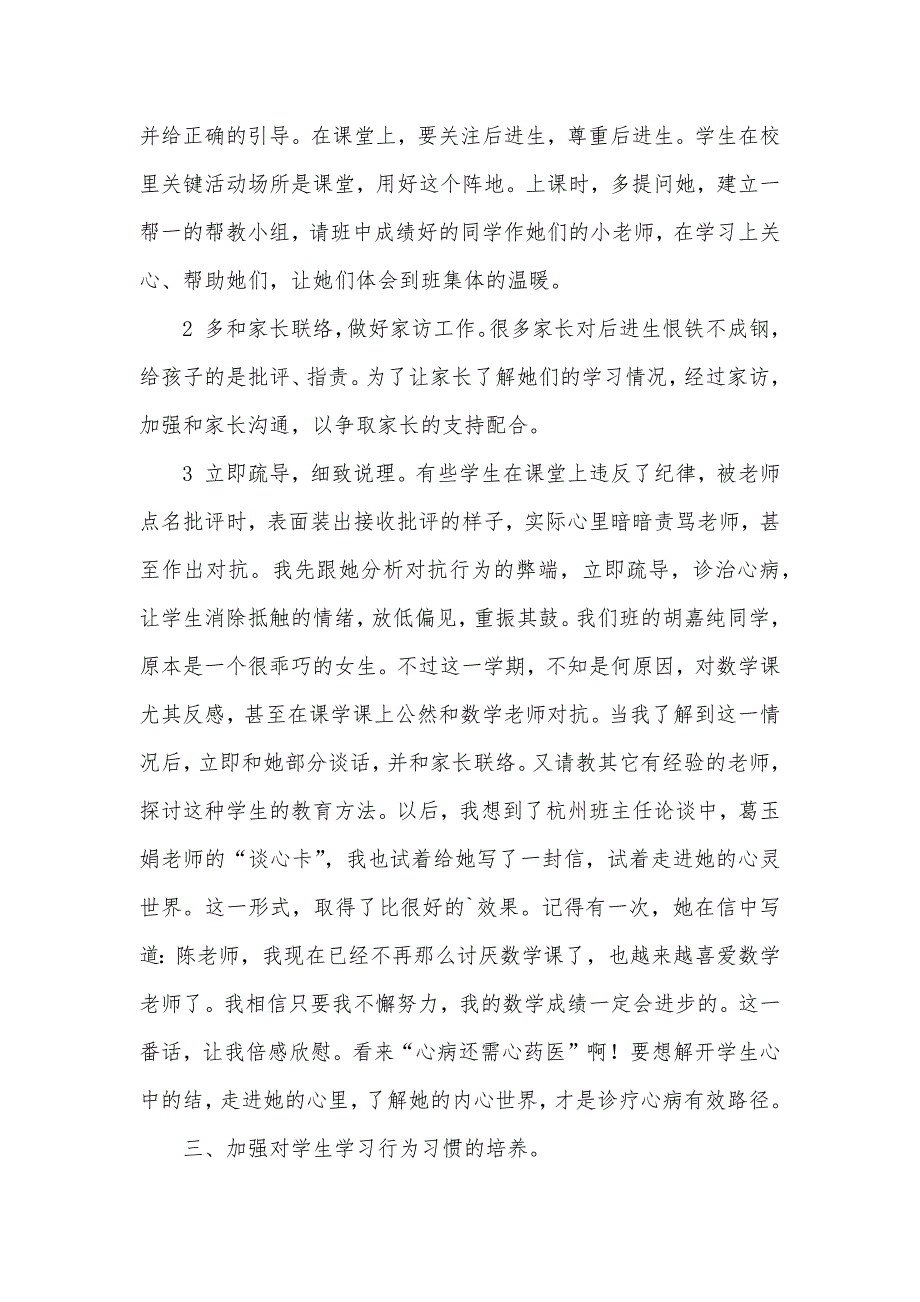 并给正确的引导。在课堂上，要关注后进生，尊重后进生。学生在校
里关键活动场所是课堂，用好这个阵地。上课时，多提问她，建立一
帮一的帮教小组，请班中成绩好的同学作她们的小老师，在学习上关
心、帮助她们，让她们体会到班集体的温暖。
2 多和家长联络，做好家访工作。很多家长对后进生恨铁不成钢，
给孩子的是批评、指责。为了让家长了解她们的学习情况，经过家访，
加强和家长沟通，以争取家长的支持配合。
3 立即疏导，细致说理。有些学生在课堂上违反了纪律，被老师
点名批评时，表面装出接收批评的样子，实际心里暗暗责骂老师，甚
至作出对抗。我先跟她分析对抗行为的弊端，立即疏导，诊治心病，
让学生消除抵触的情绪，放低偏见，重振其鼓。我们班的胡嘉纯同学，
原本是一个很乖巧的女生。不过这一学期，不知是何原因，对数学课
尤其反感，甚至在课学课上公然和数学老师对抗。当我了解到这一情
况后，立即和她部分谈话，并和家长联络。又请教其它有经验的老师，
探讨这种学生的教育方法。以后，我想到了杭州班主任论谈中，葛玉
娟老师的“谈心卡”，我也试着给她写了一封信，试着走进她的心灵
世界。这一形式，取得了比很好的`效果。记得有一次，她在信中写
道：陈老师，我现在已经不再那么讨厌数学课了，也越来越喜爱数学
老师了。我相信只要我不懈努力，我的数学成绩一定会进步的。这一
番话，让我倍感欣慰。看来“心病还需心药医”啊！要想解开学生心
中的结，走进她的心里，了解她的内心世界，才是诊疗心病有效路径。
三、加强对学生学习行为习惯的培养。